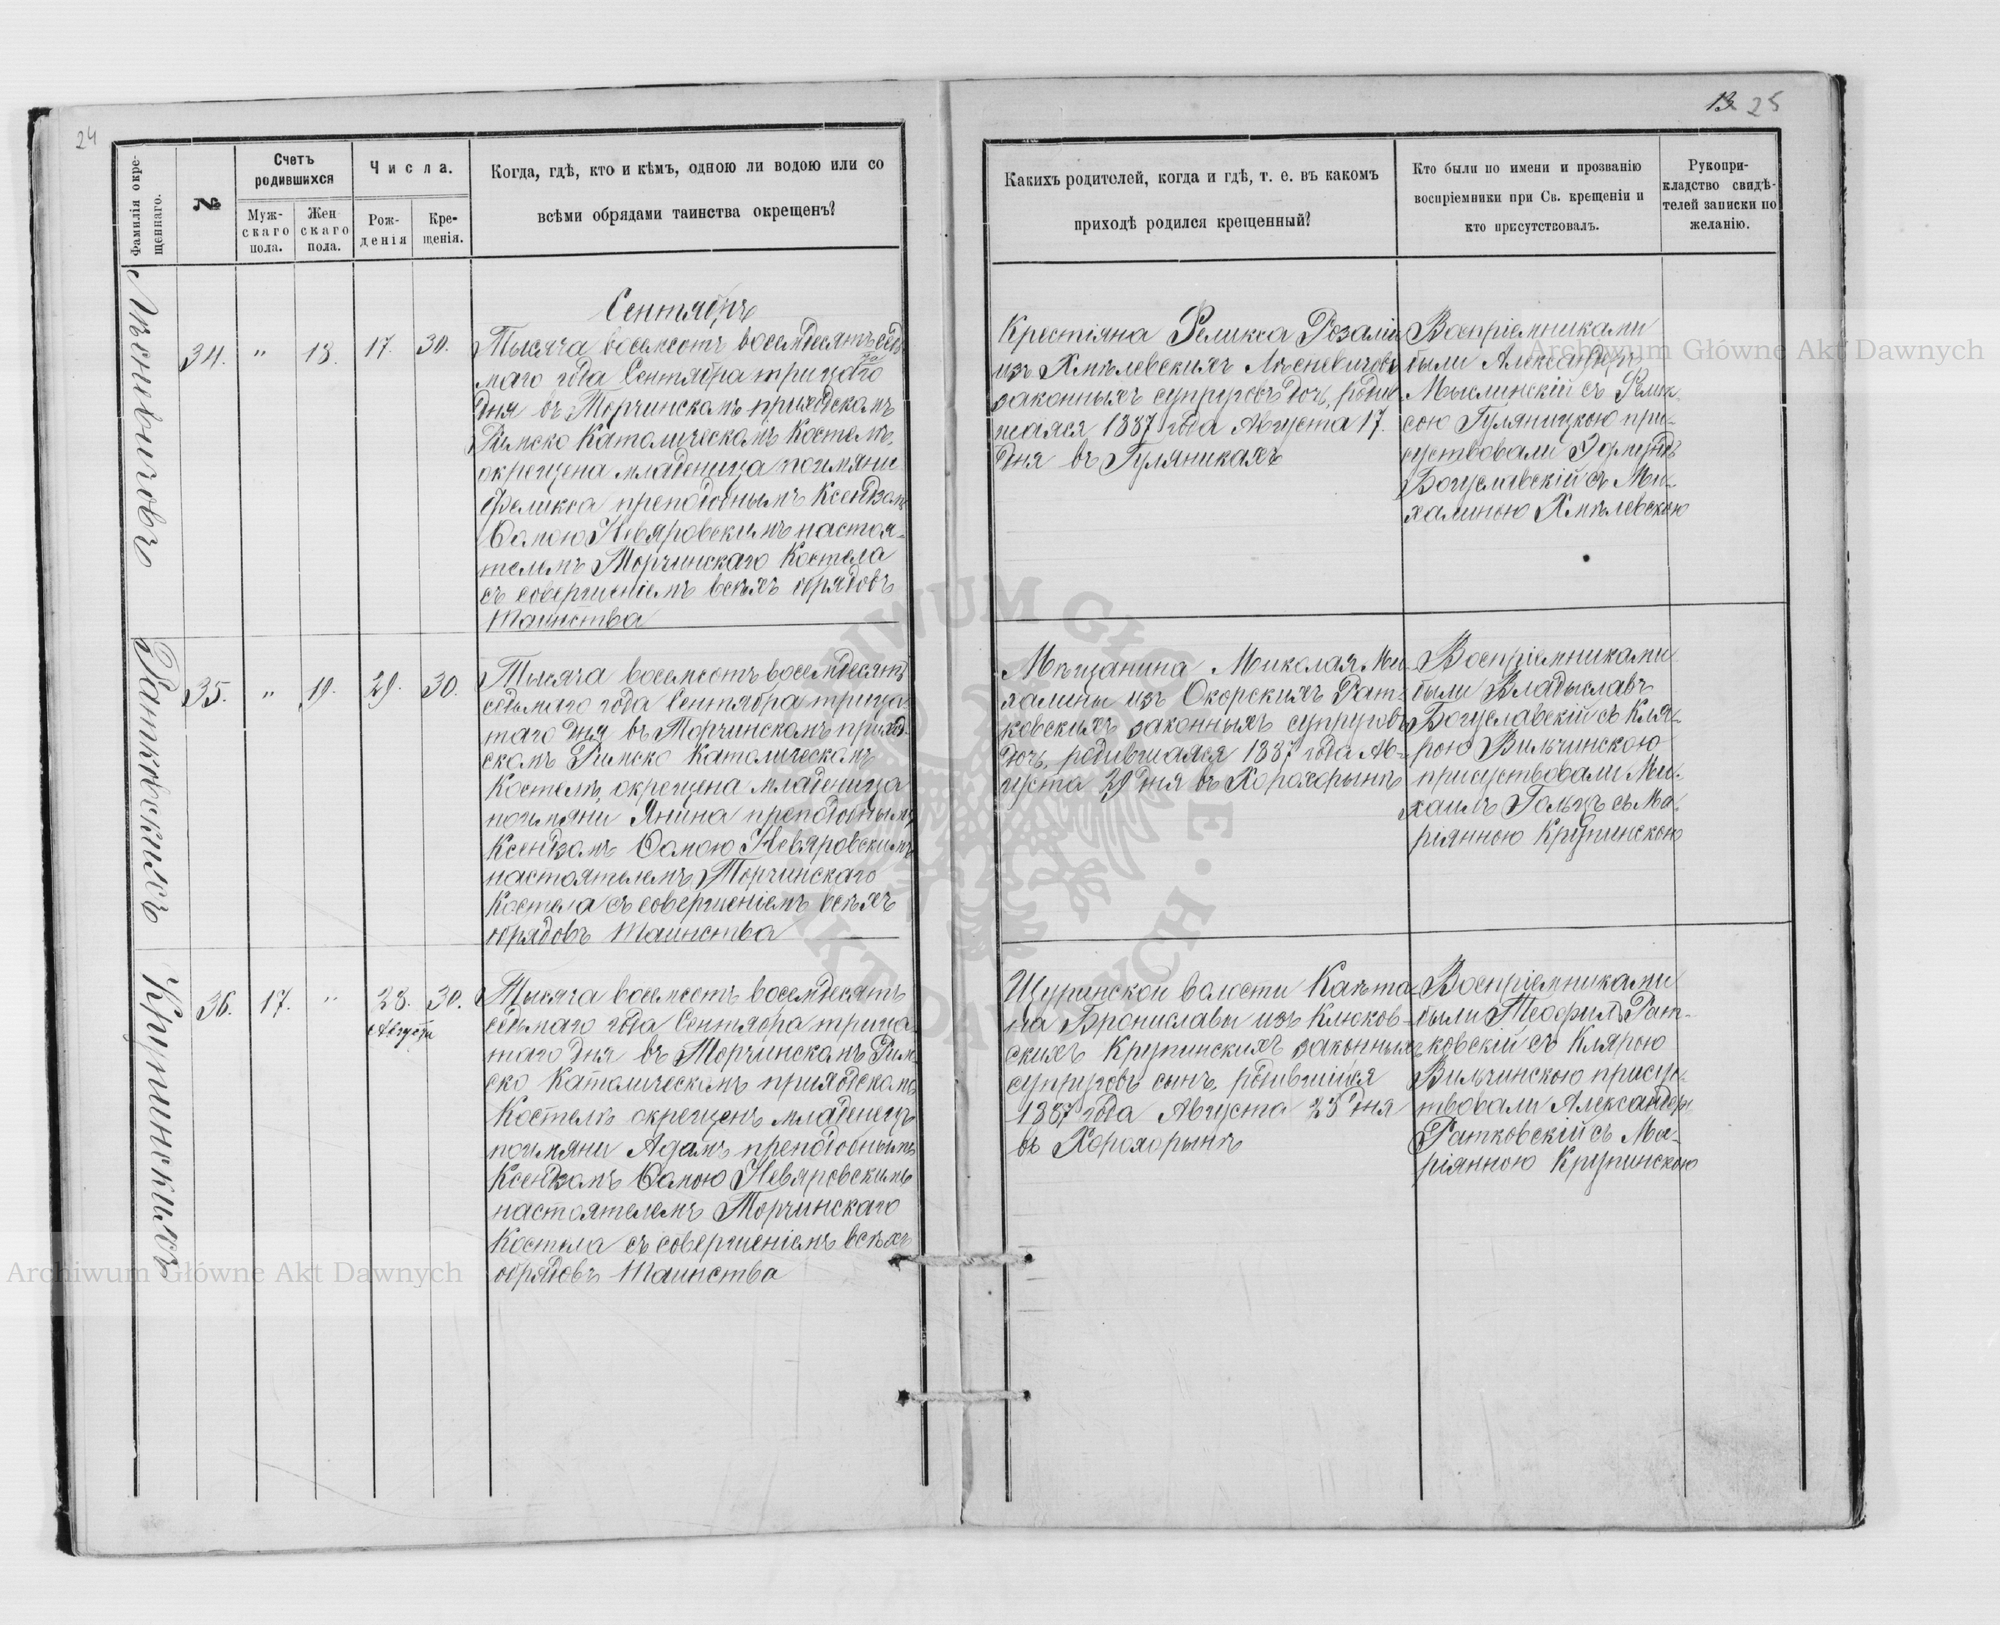 24
Фамилія окре-
щеннаго.
№
Счетъ
родившихся
Муж-
скаго
пола.
Жен
скаго
пола.
Числа.
Рож-
денія
Кре-
щенія.
Когда, гдѣ, кто и кѣмъ, одною ли водою или со
всѣми обрядами таинства окрещенъ?
Лѣсневичовъ
34.
"
18.
17.
30.
Сентябрь
Тысяча восемсотъ восемдесятъ седь
маго года Сентября трицатаго
дня въ Торчинскомъ приходскомъ
Римско Католическомъ Костелѣ
окрещена младенца поимяни
Феликса преподобнымъ Ксендзомъ
Ѳомою Невяровскимъ настоя-
телемъ Торчинскаго Костела
съ совершеніемъ всѣхъ обрядовъ
Таинства
Ратковскихъ
35.
"
19.
29.
30.
Тысяча восемсотъ восемдесятъ
седьмаго года Сентября трица
таго дня въ Торчинскомъ приход-
скомъ Римско Католическомъ
Костелѣ окрещена младенца
поимяни Янина преподобнымъ
Ксендзомъ Ѳомою Невяровскимъ
настоятелемъ Торчинскаго
Костела съ совершеніемъ всѣхъ
обрядовъ Таинства
Крупинскихъ
36.
17.
"
28.
Августа
30.
Тысяча восемсотъ восемдесятъ
седьмаго года Сентября трица
таго дня въ Торчинскомъ Рим-
ско Католическомъ приходскомъ
Костелѣ окрещенъ младенецъ
поимяни Адамъ преподобнымъ
Ксендзомъ Ѳомою Невяровскимъ
настоятелемъ Торчинскаго
Костела съ совершеніемъ всѣхъ
обрядовъ Таинства
13 25
Какихъ родителей, когда и гдѣ, т. е. въ какомъ
приходѣ родился крещенный?
Кто были по имени и прозванію
воспріемники при Св. крещеніи и
кто присутствовалъ.
Рукопри-
кладство свидѣ-
телей записки по
желанію.
Крестіяна Феликса Розаліи
изъ Хмѣлевскихъ Лѣсневичовъ
законныхъ супруговъ дочь, родив-
шаяся 1887 года Августа 17.
дня въ Гуляникахъ
Воспріемниками
были Александеръ
Мыслинскій съ Фелик-
сою Гуляницкою при-
суствовали Эдмундъ
Богуславскій съ Ми-
халиною Хмѣлевскою
Мѣщанина Миколая Ми-
халины изъ Окорскихъ Рат-
ковскихъ законныхъ супруговъ
дочь, родившаяся 1887 года Ав-
густа 29 дня въ Хорохорынѣ
Воспріемниками
были Владыславъ
Богуславскій съ Кля-
рою Вильчинскою
присуствовали Ми-
хаилъ Гольцъ съ Ма-
ріянною Крупинскою
Щуринской волости Каѣта
на Брониславы изъ Клюков-
скихъ Крупинскихъ законныхъ
супруговъ сынъ, родившійся
1887 года Августа 28 дня
въ Хорохорынѣ
Воспріемниками
были Теофилъ Рат-
ковскій съ Клярою
Вильчинскою присус-
твовали Александеръ
Ратковскій съ Ма-
ріянною Крупинскою
Archiwum Główne Akt Dawnych
Archiwum Główne Akt Dawnych
ARCHIWUM GŁÓWNE AKT DAWNYCH